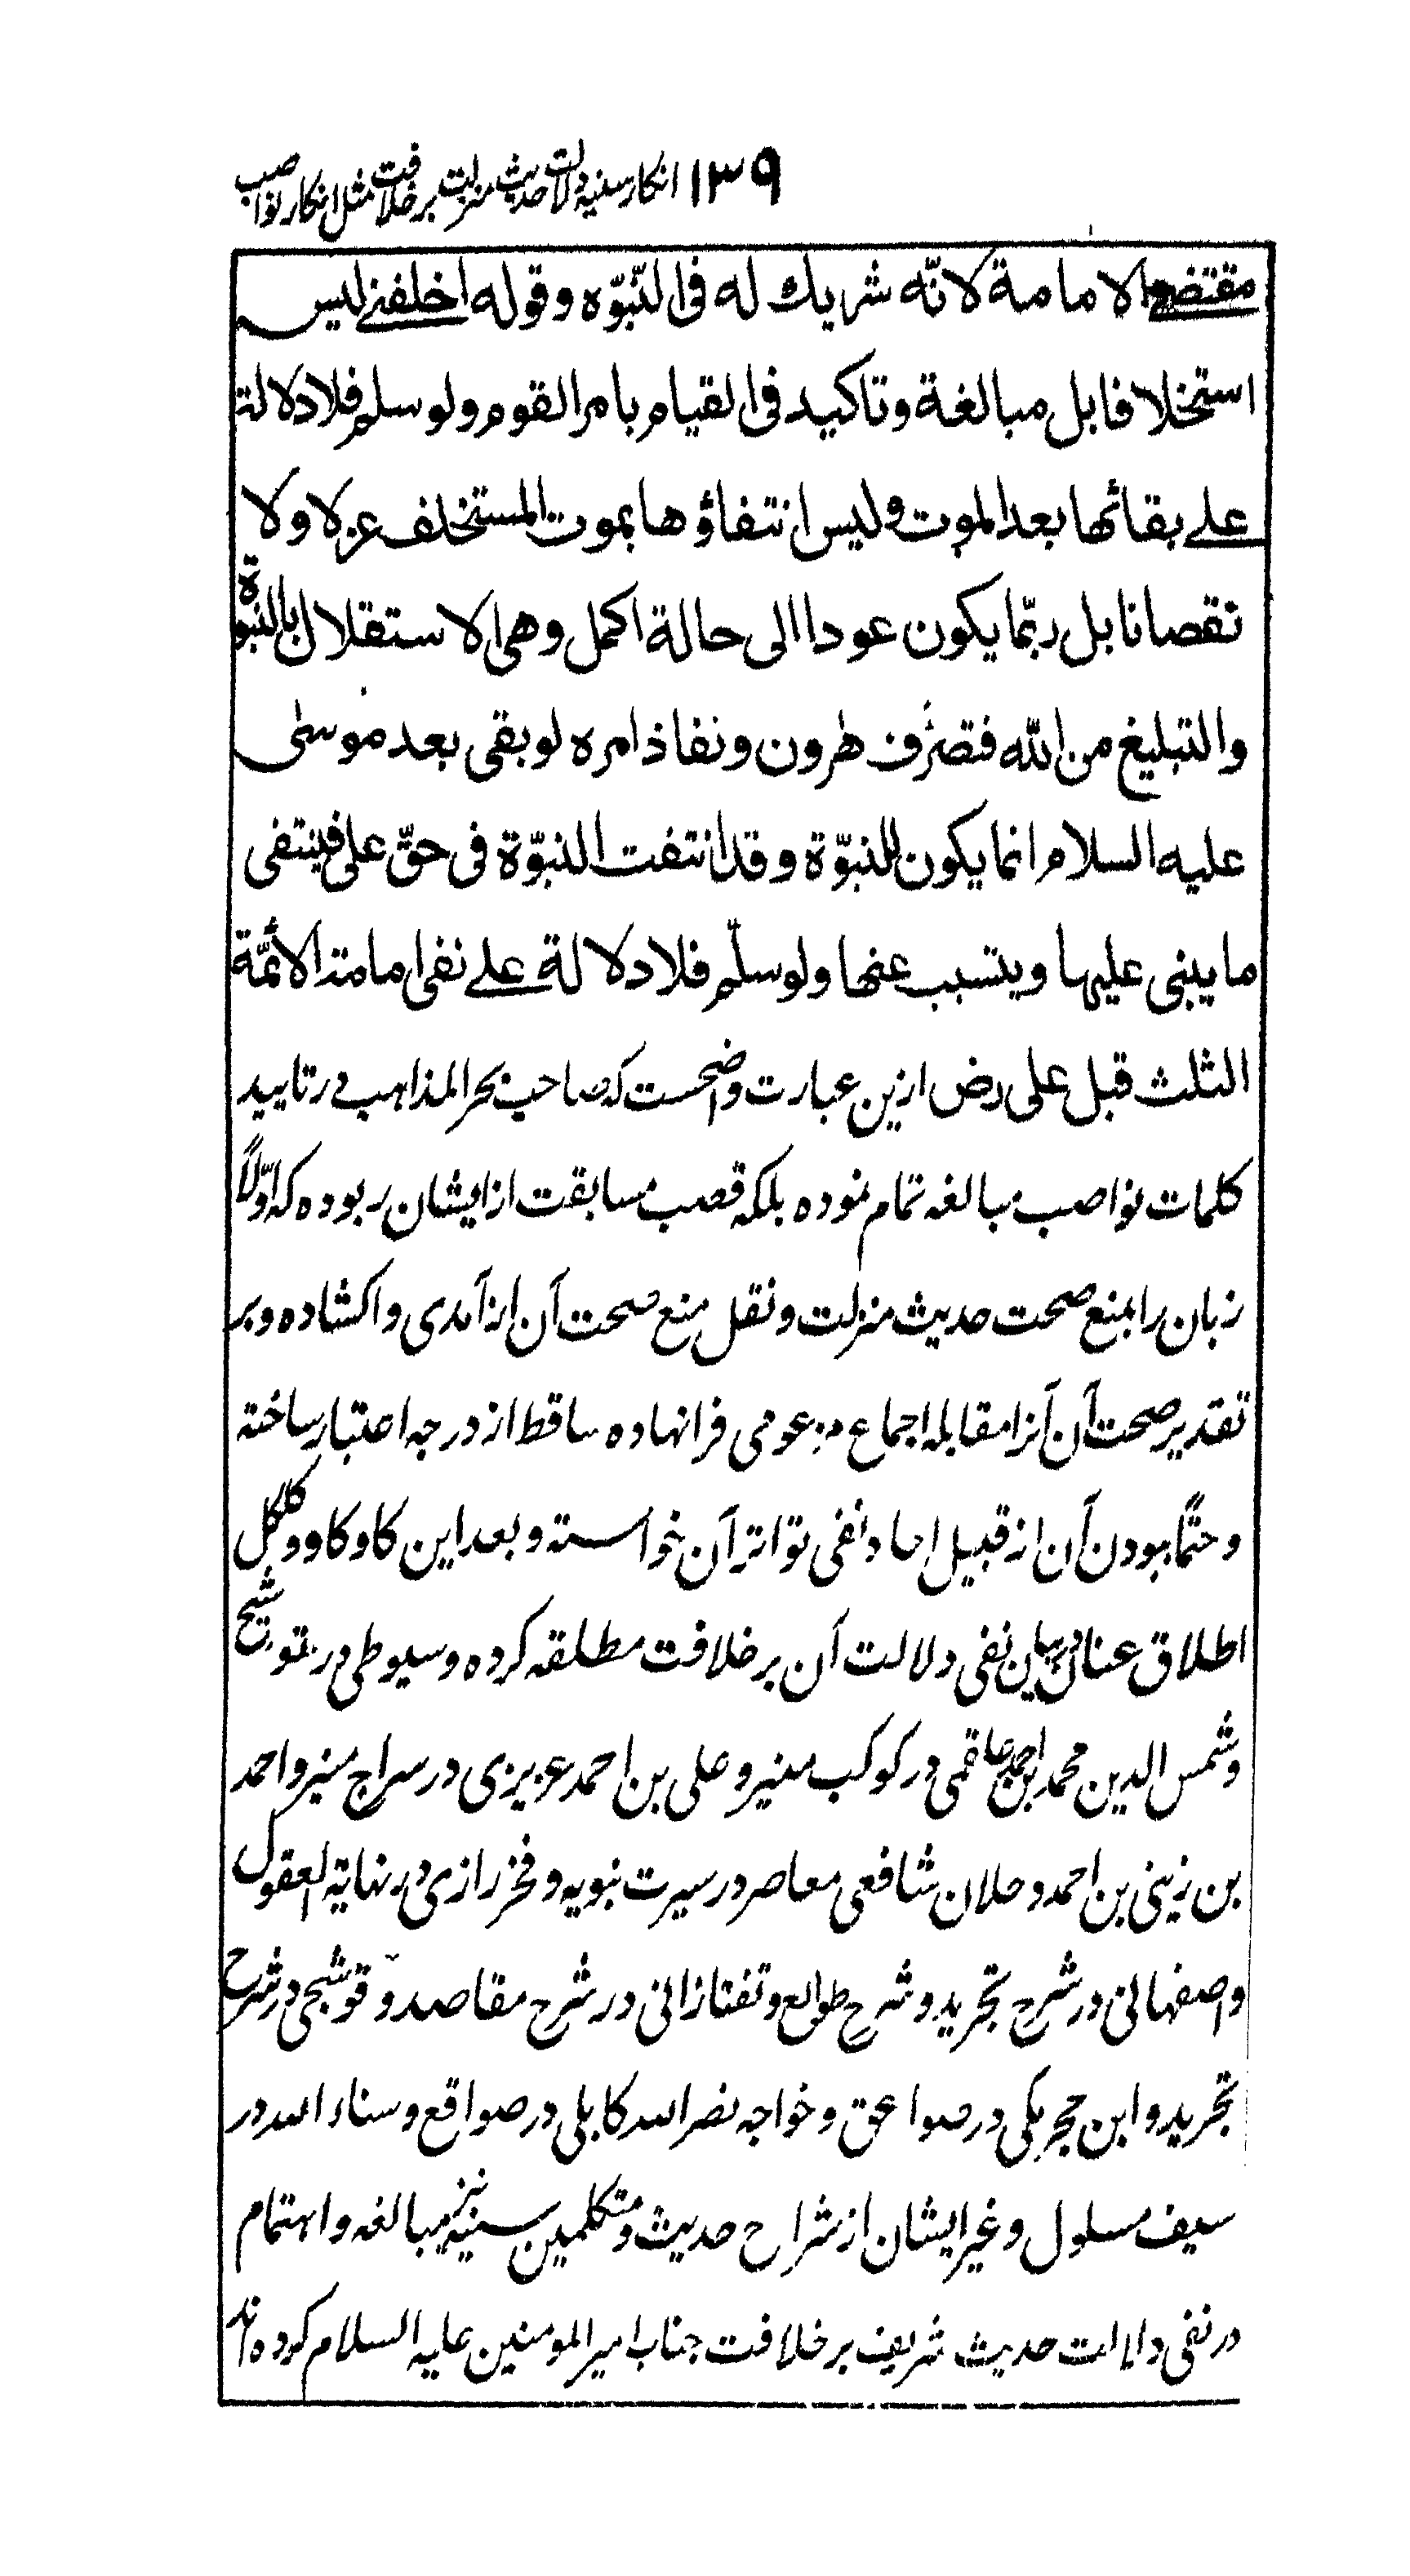 ۱۳۹ انکار سنیه دلالت حدیث منزلت بر خلافت مثل انکار نواصب
مقتضی الامامة لانّه شریك له فی النّبوّه وقوله اخلفنی لیس
استخلافا بل مبالغة وتاکید فی القیام بامر القوم ولو سلم فلا دلالة
علی بقائها بعد الموت ولیس انتفاؤها بموت المستخلف عزلا ولا
نقصانا بل ربّما یکون عودا الی حالة اکمل وهی الاستقلال بالنبوة
والتبلیغ من اللّه فتصرّف هرون ونفاذ امره لو بقی بعد موسی
علیه السلام انما یکون للنبوّة وقد انتفت النبوّة فی حقّ علی فینتفی
ما یبنی علیها ویتسبب عنها ولو سلّم فلا دلالة علی نفی امامة الائمّة
الثلث قبل علی رض ازین عبارت واضحست که صاحب بحر المذاهب در تایید
کلمات نواصب مبالغه تمام نموده بلکه قصب مسابقت از ایشان ربوده که اوّلاً
زبان را بمنع صحت حدیث منزلت ونقل منع صحت آن از آمدی وا کشاده وبر
تقدیر صحت آن آنرا مقابل اجماع مزعومی فرا نهاده ساقط از درجه اعتبار ساخته
وحتماً ببودن آن از قبیل احاد نفی تواتر آن خواسته وبعد این کاوکاو وکلکل
اطلاق عنان در بیان نفی دلالت آن بر خلافت مطلقه کرده وسیوطی در توشیح
وشمس الدین محمد بن احمد علقمی در کوکب منیر وعلی بن احمد عزیزی در سراج منیر واحمد
بن زینی بن احمد دحلان شافعی معاصر در سیرت نبویه وفخر رازی در نهایة العقول
واصفهانی در شرح تجرید وشرح طوالع وتفتازانی در شرح مقاصد وقوشجی در شرح
تجرید وابن حجر مکی در صواعق وخواجه نصر الله کابلی در صواقع وسناء الله در
سیف مسلول وغیر ایشان از شراح حدیث ومتکلمین سنیه نیز مبالغه واهتمام
در نفی دلالت حدیث شریف بر خلافت جناب امیر المومنین علیه السلام کرده اند